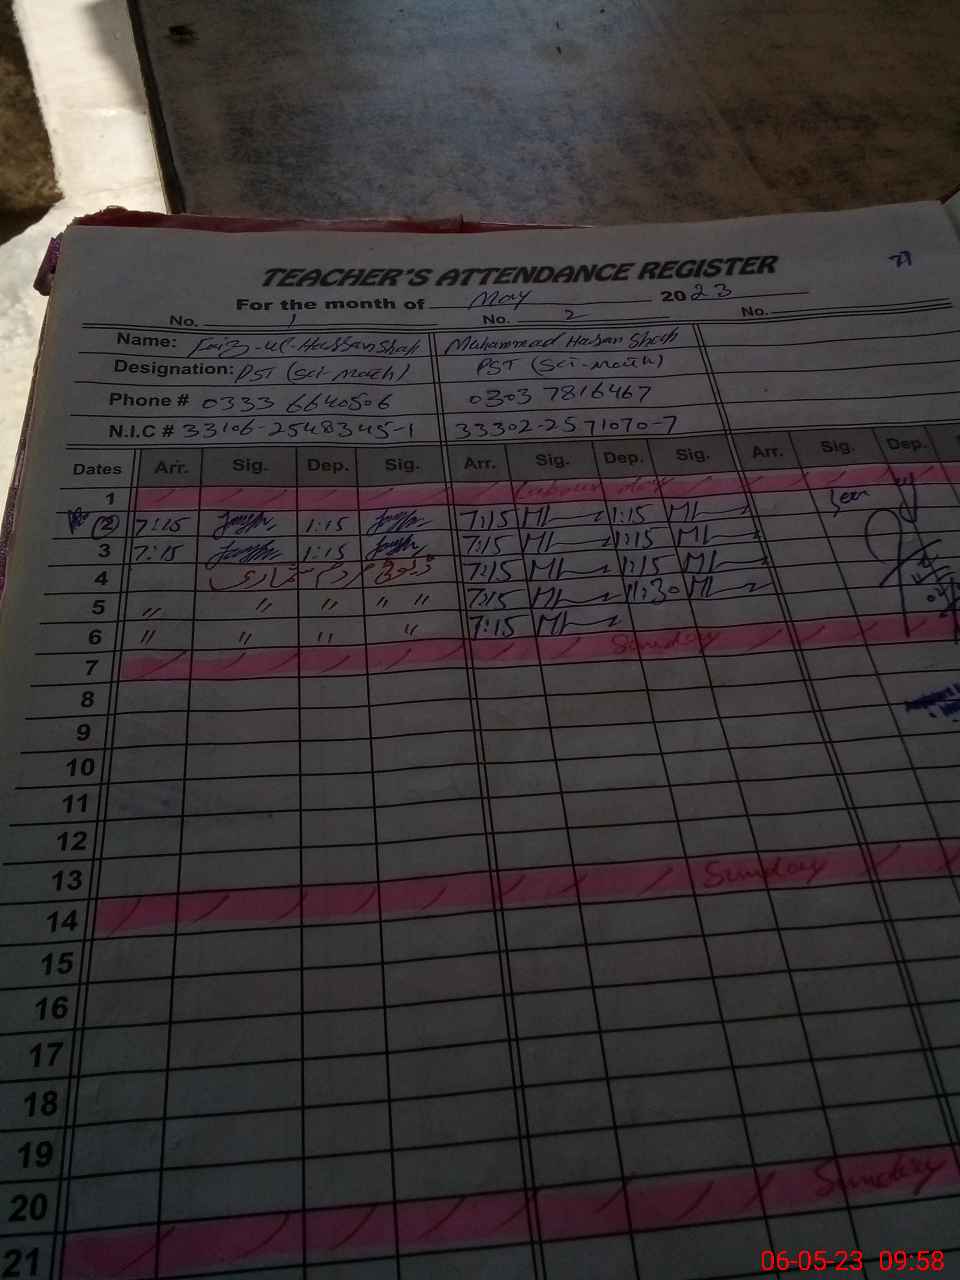 77
TEACHER'S ATTENDANCE REGISTER
For the month of May 2023
No. 1 No. 2 No.
Name: Faiz-ul-Hassan Shah Muhammad Hassan Shah
Designation: PST (Sci-Math) PST (Sci-Math)
Phone # 0333 6640506 0303 7816467
N.I.C # 33106-2548345-1 33302-2571070-7
Dates Arr. Sig. Dep. Sig. Arr. Sig. Dep. Sig. Arr. Sig. Dep.
1 Labour day
2 7:15 1:15 7:15 1:15
3 7:15 1:15 7:15 1:15
4 7:15 1:15
5 〃 〃 〃 〃 〃 7:15 11:30
6 〃 〃 〃 〃 7:15
7 Sunday
8
9
10
11
12
13
14 Sunday
15
16
17
18
19
20
21 Sunday
06-05-23 09:58